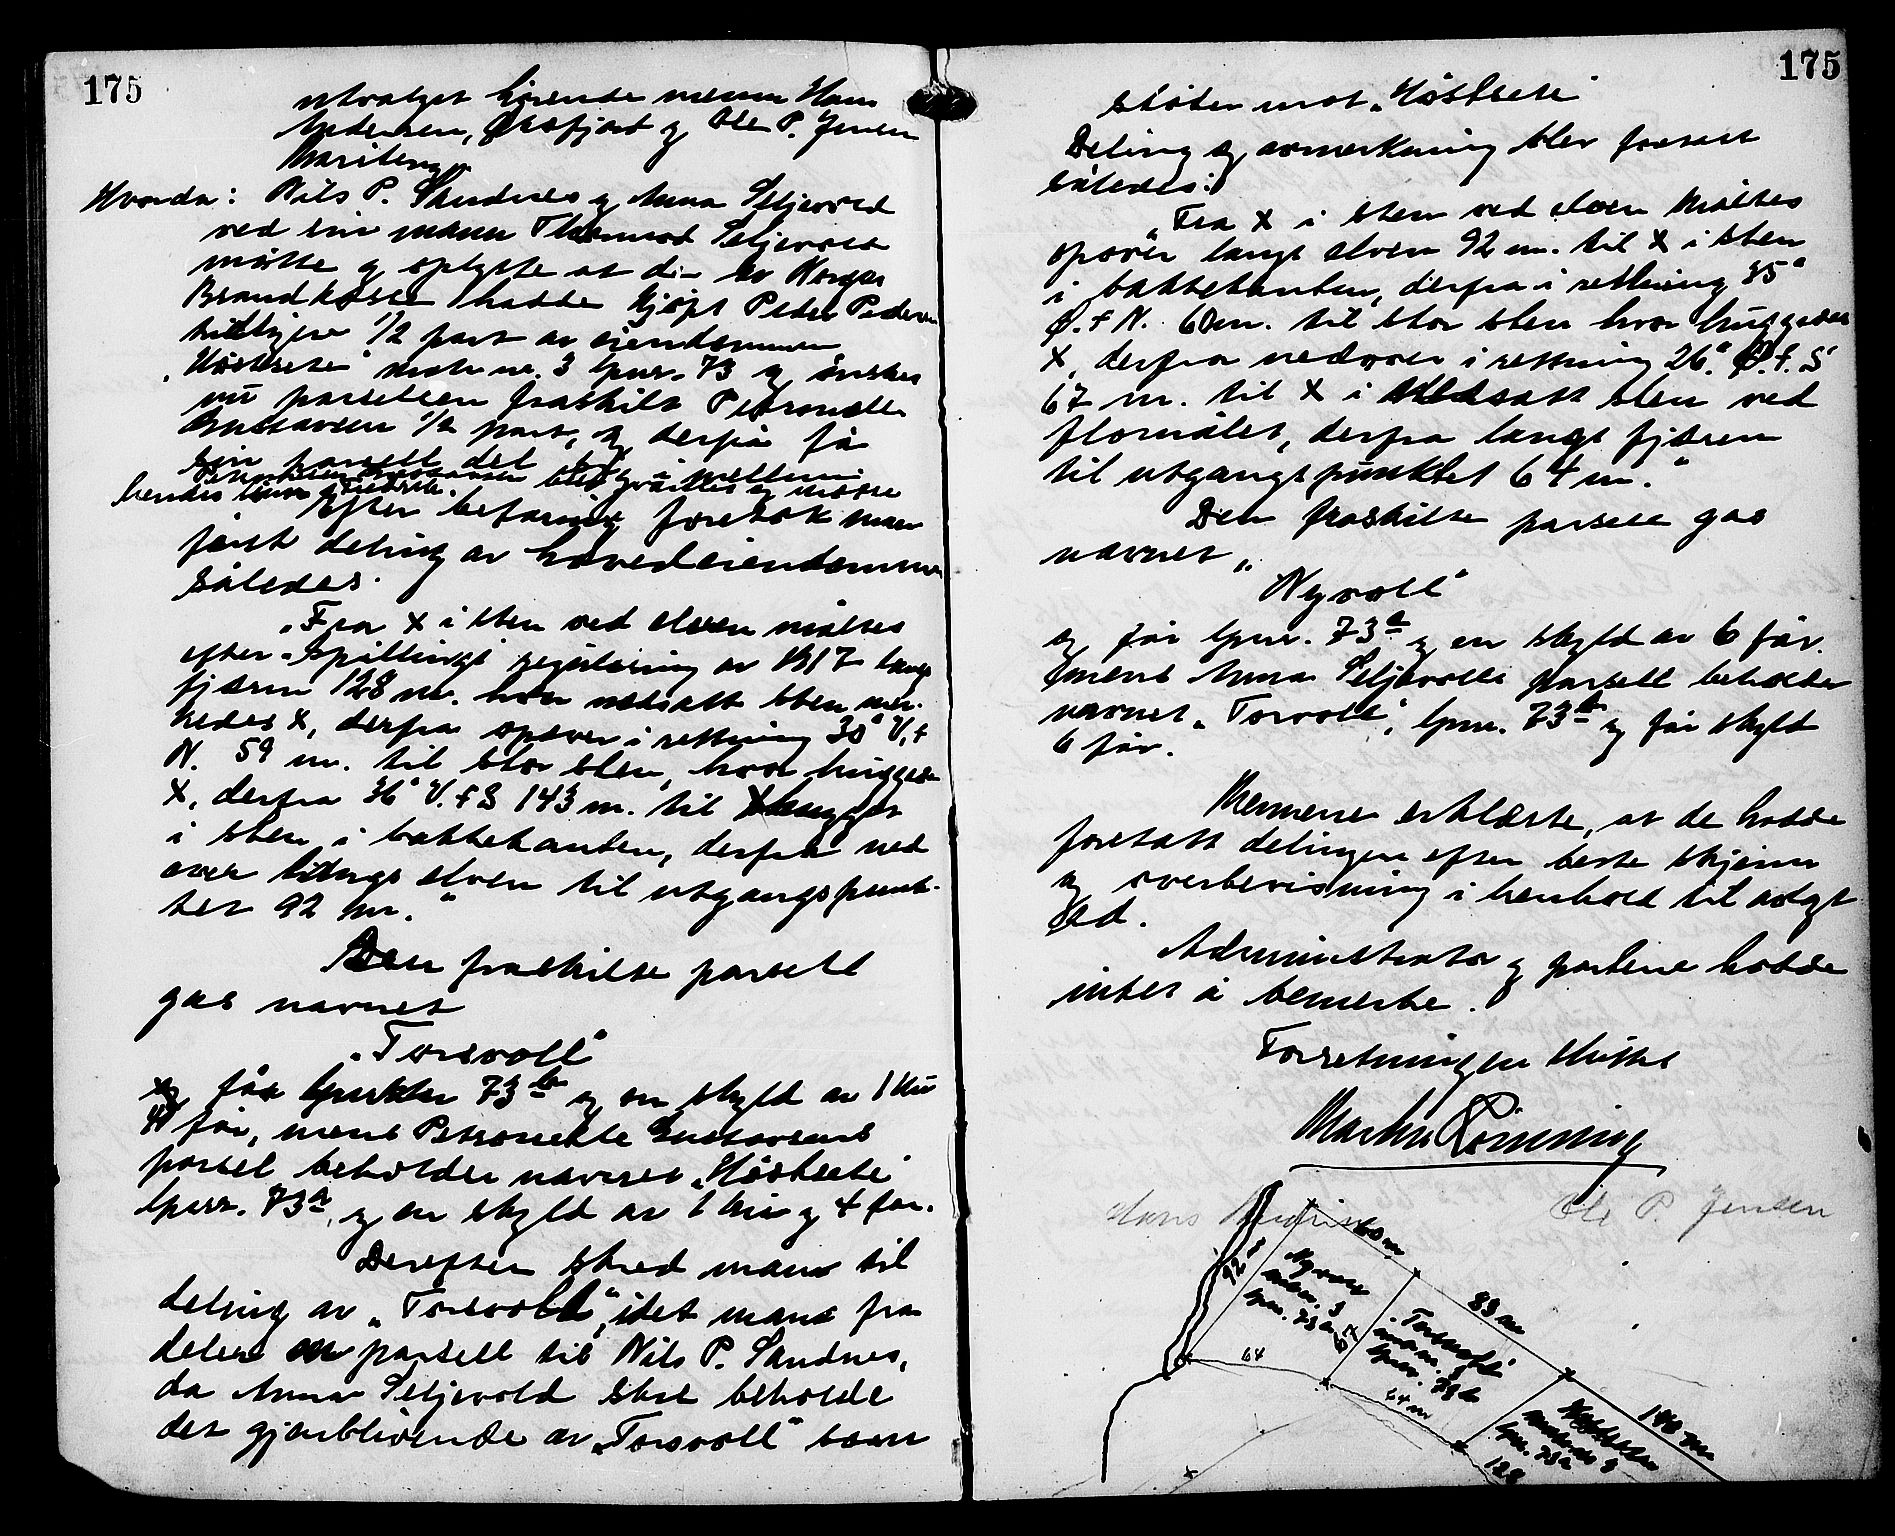 175
utvalget hjørende menn Hans
Andersen, Øksfjord og Ole P. Jensen
Mariteng.
Hvorda: Nils P. Sandnes og Anna Seljevold
ved sin mann Thormod Seljevold
møtte og oplyste at di av Norges
Brandkasse hadde kjøpt Peder Pedersen
tidligere 1/2 part av eiendommen
„Høstsete" matr. nr. 3 lpnr. 73 og ønsker
nu parsellen fraskilt Petronelle
Gustavsen 1/2 part, og derpå få
sin parsell delt
Petronelle Gustavsen blev møtte
hendes
Efter befaring foretok man
først deling av hovedeiendommen
således.
„Fra x i sten ved elven måltes
efter Spillings regulering av 1917 langs
fjæren 128 m. hvor nedsatt sten mer-
kedes x, derfra opover i retning 30° V. f
N. 59 m. til stor sten, hvor hugges
x, derfra 36° V. f S 143 m. til x hugget
i sten i bakkekanten, derfra ned
over langs elven til utgangspunk-
tet 92 m."
Den fraskilte parsell
gas navnet
„Torsvoll"
og får lpnr. 73 b og en skyld av 1 ku
4 får, mens Petronelle Gustavsens
parsel beholder navnet „Høstsete"
lpnr. 73 a, og en skyld av 1 ku og 4 får.
Derefter skred man til
deling av „Torsvoll", idet man fra
deler en parsell til Nils P. Sandnes,
da Anna Seljevold skal beholde
det gjenblivende av „Torsvoll" som
175
støter mot „Høstsete"
Deling og avmerkning blev foretatt
således:
„Fra x i sten ved elven måltes
opover langs elven 92 m. til x i sten
i bakkekanten, derfra i retning 35°
Ø. f N. 60 m. til stor sten hvor hugges
x, derfra nedover i retning 26° Ø. f. S
67 m. til x i nedsatt sten ved
flomålet, derfra langs fjæren
til utgangspunktet 64 m."
Den fraskilte parsell gas
navnet „
Nyvoll"
og får lpnr. 73 a og en skyld av 6 får.
mens Anna Seljevolls parsell beholder
navnet „Torsvoll", lpnr. 73 b og får skyld
6 får.
Mennene erklærte, at de hadde
foretatt delingen efter beste skjønn
og overbevisning i henhold til avlagt
ed.
Administrator og partene hadde
intet å bemerke.
Forretningen sluttet
Martin Rønning
Hans
Ole P. Jensen
60 m
92
Nyvoll
m.nr. 3
lpnr. 73 a
67
83 m
Torsvoll
m.nr. 3
lpnr. 73 b
64
64 m
143 m
Høstsete
lpnr. 73 a
128